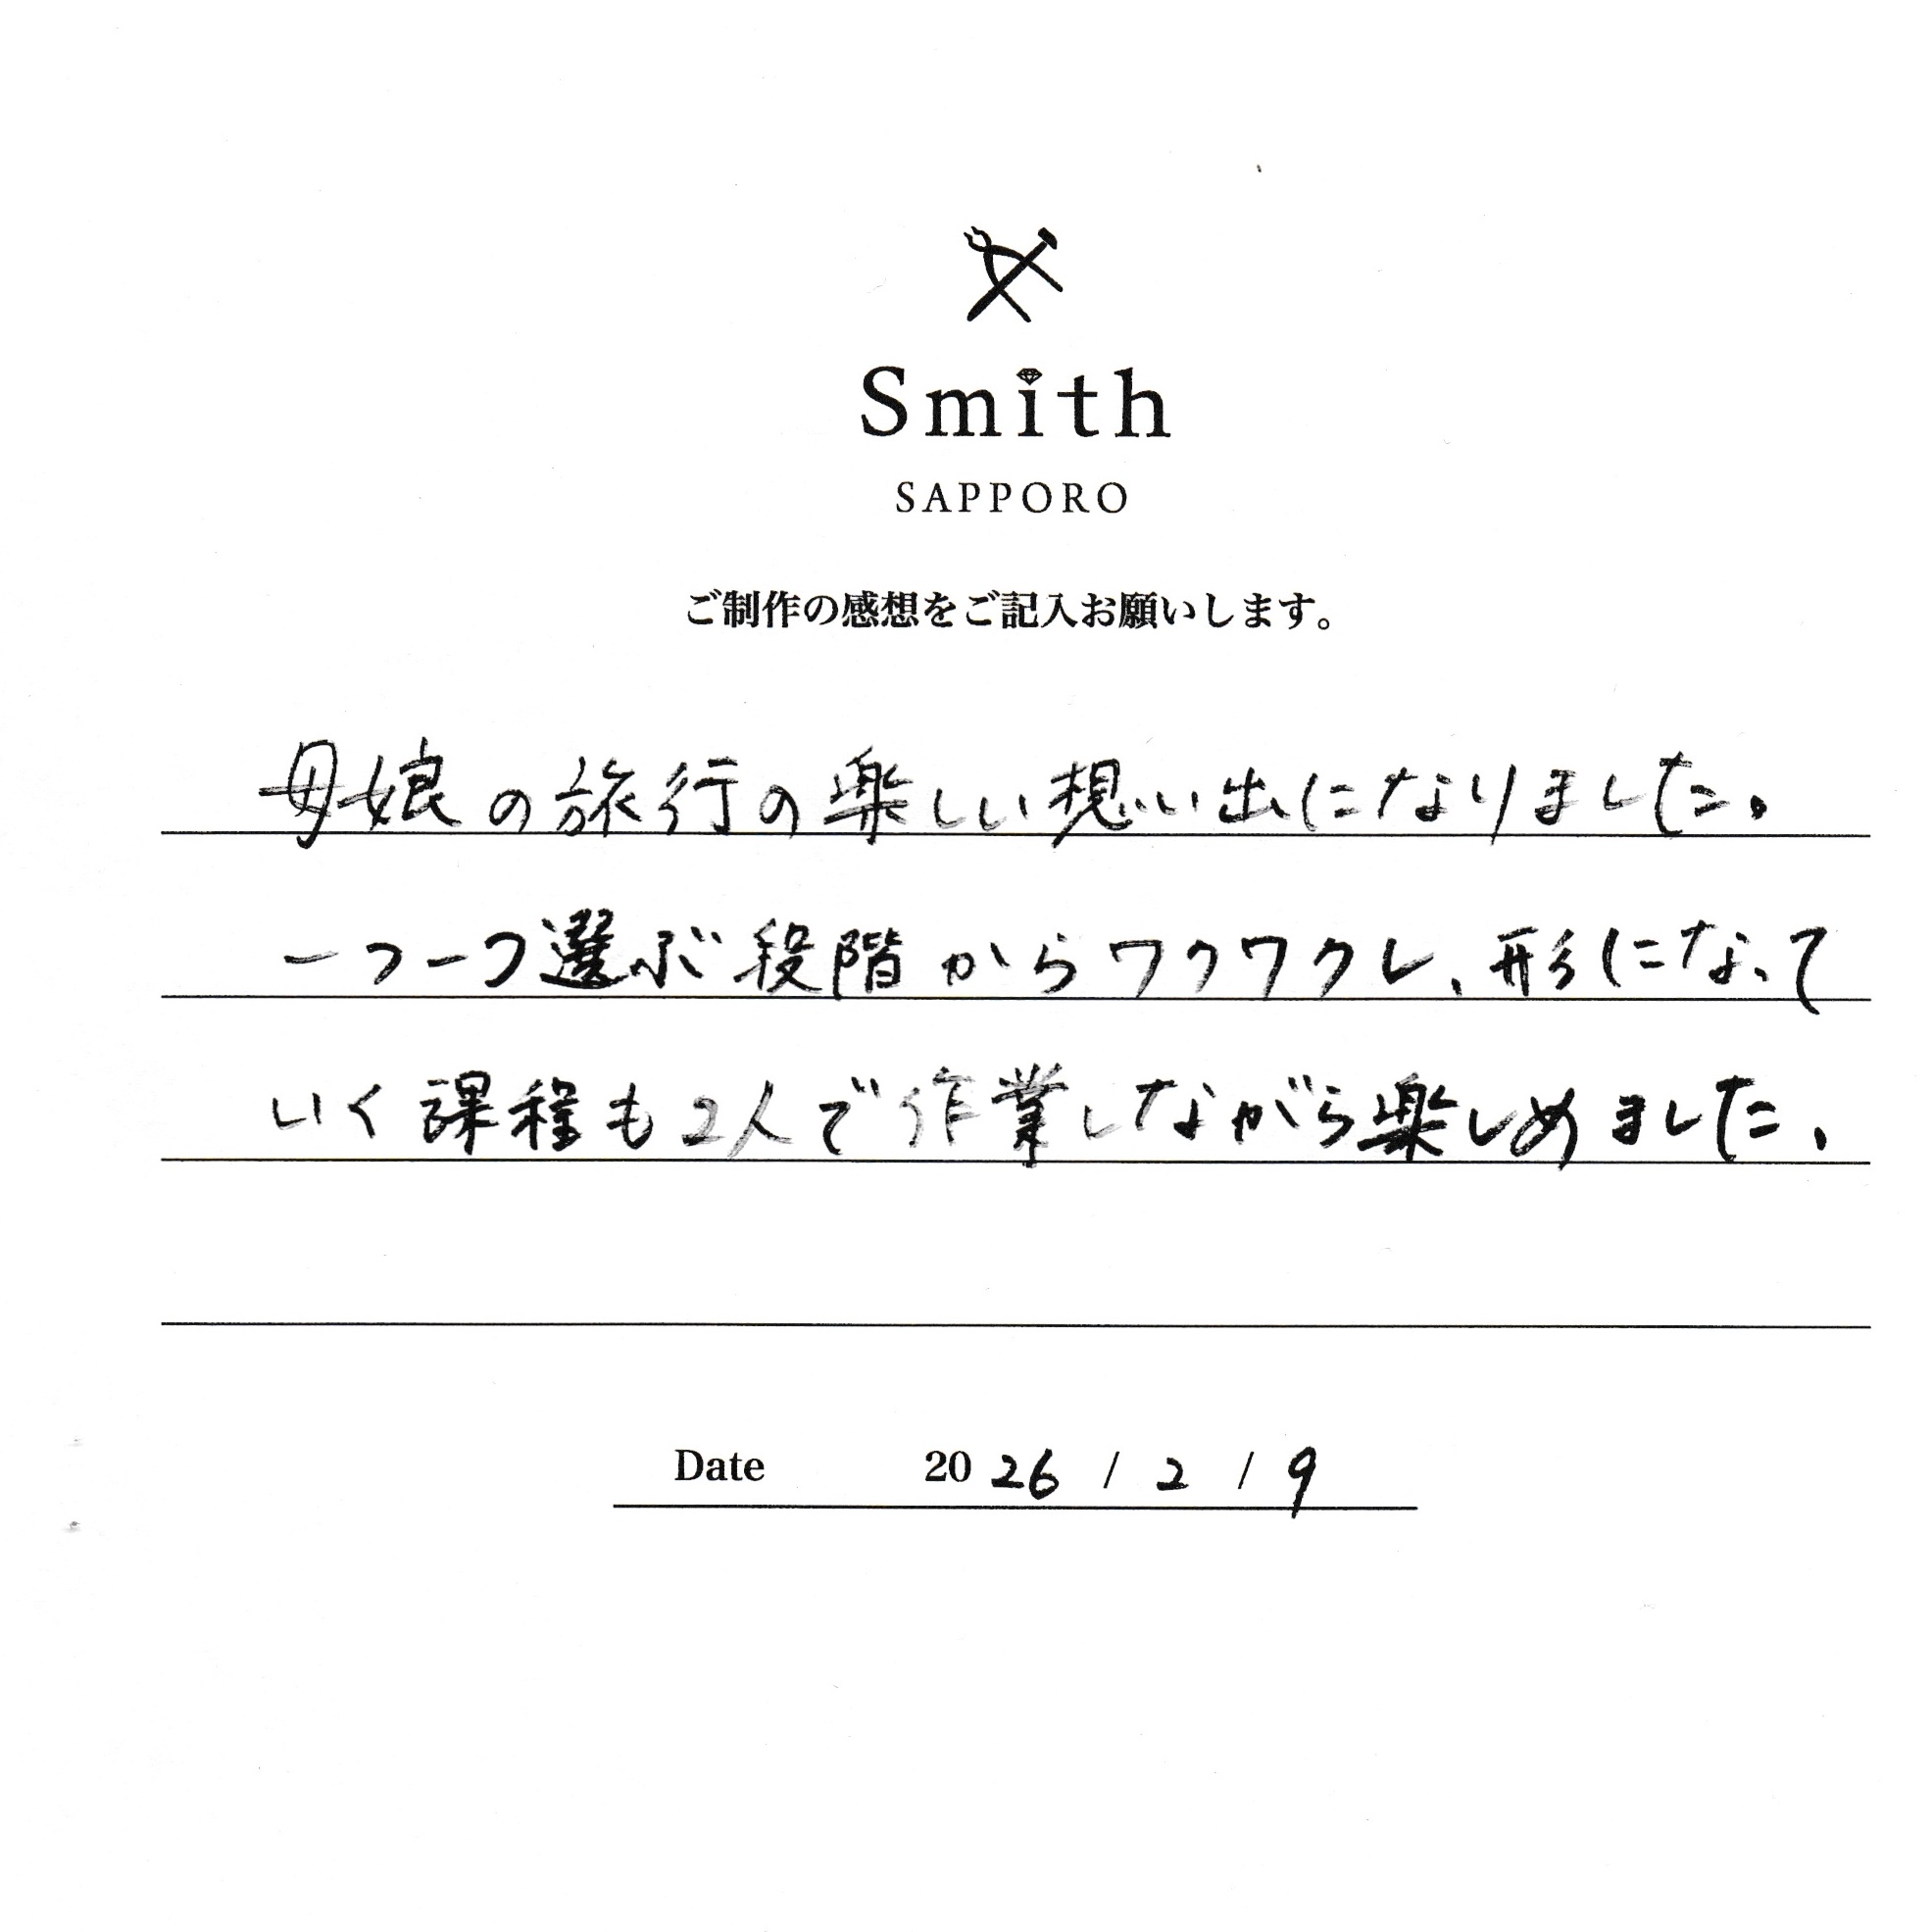 Smith
SAPPORO
ご制作の感想をご記入お願いします。
母娘の旅行の楽しい想い出になりました。
一つ一つ選ぶ段階からワクワクし、形になって
いく課程も2人で作業しながら楽しめました、
Date 2026 / 2 / 9